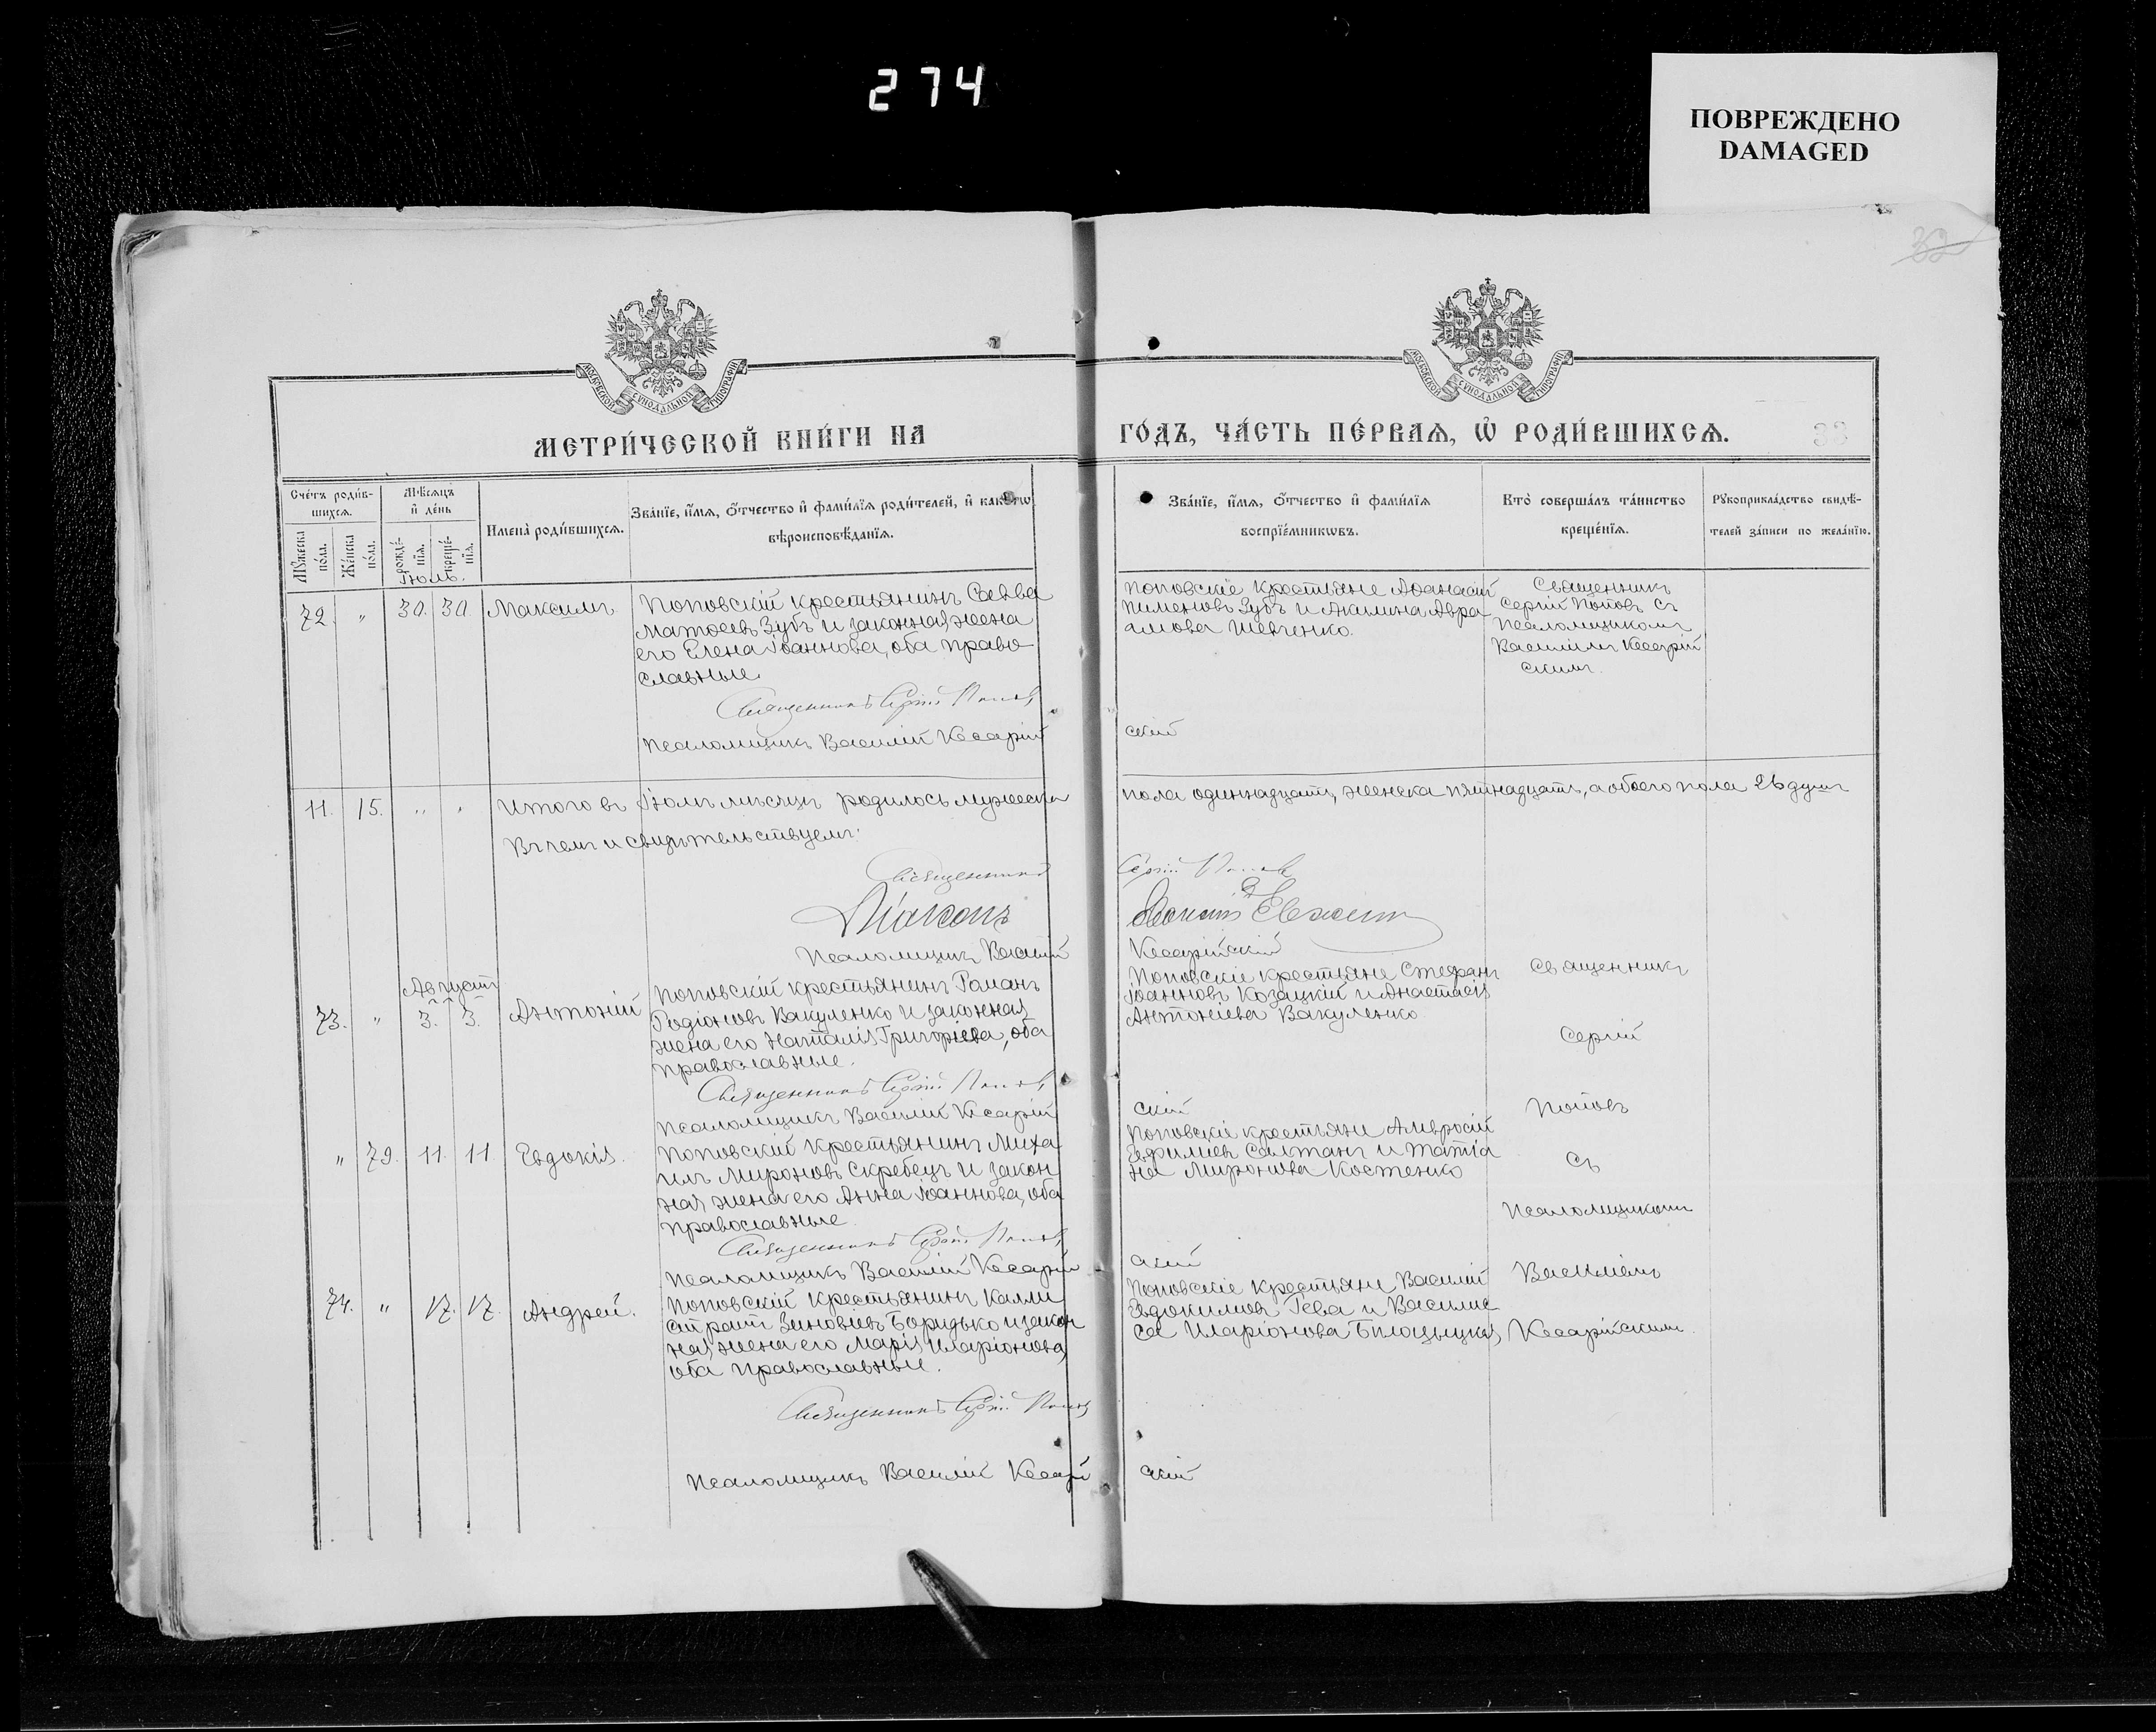 274
ПОВРЕЖДЕНО
DAMAGED
32
МОСКОВСКОЙ СѴНОДАЛЬНОЙ ТИПОГРАФІИ
МОСКОВСКОЙ СѴНОДАЛЬНОЙ ТИПОГРАФІИ
МЕТРИ́ЧЕСКОЙ КНИ́ГИ НА
ГО́ДЪ, ЧА́СТЬ ПЕ́РВАѦ, Ѡ҆ РОДИ́ВШИХСѦ.
33
Сче́тъ роди́в-
шихсѧ.
Мꙋ́жеска
по́ла.
Же́нска
по́ла.
Мѣ́сѧцъ
и҆ де́нь
рожде́-
нїѧ.
креще́-
нїѧ.
Имена̀ роди́вшихсѧ.
Зва́нїе, и҆́мѧ, ѻ҆́тчество и҆ фами́лїѧ роди́телей, и҆ како́гѡ
вѣроисповѣ́данїѧ.
Зва́нїе, и҆́мѧ, ѻ҆́тчество и҆ фами́лїѧ
воспрїе́мникѡвъ.
Кто̀ соверша́лъ та́инство
креще́нїѧ.
Рꙋкоприкла́дство свидѣ́-
телей за́писи по жела́нїю.
Іюль.
72. " 30. 30. Максимъ
Поповскій крестьянинъ Савва
Матѳеевъ Зубъ и законная жена
его Елена Іоаннова, оба право-
славные.
Священникъ Сергій Поповъ
Псаломщикъ Василій Кесарій
Поповскіе крестьяне Аѳанасій
Пименовъ Зубъ и Акилина Авра-
амова Шевченко.
Священникъ
Сергій Поповъ съ
Псаломщикомъ
Василіемъ Кесарій
скимъ.
скій
11. 15. " " Итого въ Іюлѣ мѣсяцѣ родилось мужеска
пола одиннадцать, женска пятнадцать, а обоего пола 26 душъ
Въ чемъ и свидѣтельствуемъ:
Священникъ
Сергій Поповъ
Діаконъ
Псаломщикъ Василій
Кесарійскій
Августъ
73. " 3. 3. Антоній
Поповскій крестьянинъ Романъ
Родіоновъ Вакуленко и законная
жена его Наталія Григоріева, оба
православные.
Священникъ Сергій Поповъ
Псаломщикъ Василій Кесарій
Поповскіе крестьяне Стефанъ
Іоанновъ Козацкій и Анастасія
Антоніева Вакуленко.
скій
Священникъ
Сергій
Поповъ
съ
Псаломщикомъ
Василіемъ
Кесарійскимъ.
" 79. 11. 11. Евдокія.
Поповскій крестьянинъ Миха
илъ Мироновъ Скребецъ и закон
ная жена его Анна Іоаннова, оба
православные.
Священникъ Сергій Поповъ
Псаломщикъ Василій Кесарій
Поповскіе крестьяне Амвросій
Евфиміевъ Салтанъ и Татіа
на Миронова Костенко
скій
74. " 17. 17. Андрей.
Поповскій крестьянинъ Калли
стратъ Зиновіевъ Боридько и закон
ная жена его Марія Иларіонова,
оба православные.
Священникъ Сергій Поповъ
Псаломщикъ Василій Кесарій
Поповскіе крестьяне Василій
Евдокимовъ Гева и Василис
са Иларіонова Билоцыцкая
скій